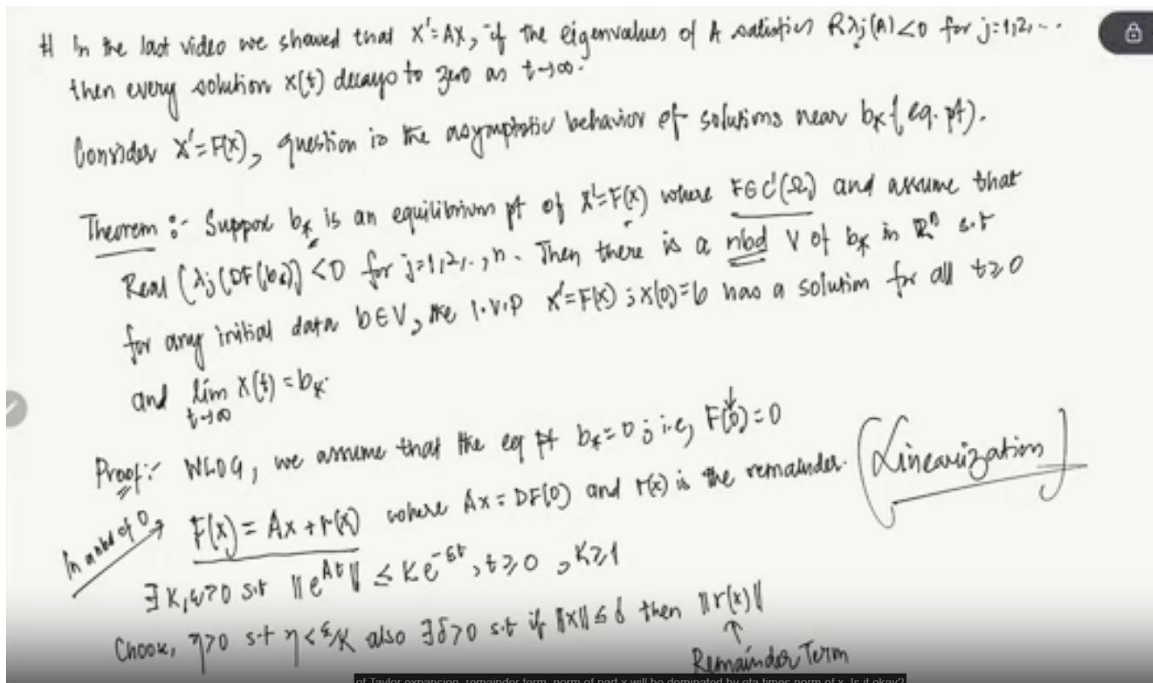 # In the last video we showed that X'=AX, if the eigenvalues of A satisfies Rλj(A)<0 for j=1,2,...
then every solution x(t) decays to zero as t→∞.
Consider X'=F(X), question is the asymptotic behavior of solutions near b* (eq. pt).
Theorem :- Suppose b* is an equilibrium pt of X'=F(X) where F∈C'(Ω) and assume that
Real (λj(DF(b*)) <0 for j=1,2,..,n. Then there is a nbd V of b* in ℝⁿ s.t
for any initial data b∈V, the I.V.P X'=F(X) ; X(0)=b has a solution for all t≥0
and lim x(t)=b*.
t→∞
Proof:- WLOG, we assume that the eq pt b*=0 ; i.e, F(0)=0
(Linearization)
In a nbd of 0, F(x) = Ax + r(x) where Ax = DF(0) and r(x) is the remainder.
∃ K, ε>0 s.t ||e^{At}|| ≤ Ke^{-εt}, t≥0 , K≥1
Choose, η>0 s.t η<ε/K also ∃δ>0 s.t if ||x||≤δ then ||r(x)||
↑
Remainder Term
of Taylor expansion, remainder term, norm of part x will be dominated by eta times norm of x. Is it okay?